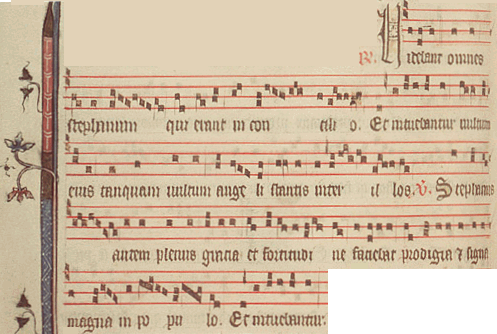 R. Videbant omnes
stephanum qui erant in con cilli o. Et intuebantur uultum
eius tanquam uultum ange li stantis inter il los. V. Stephanus
autem plenus gracia et fortitudi ne faciebat prodigia ⁊ signa
magna in po pu lo. Et intuebantur.